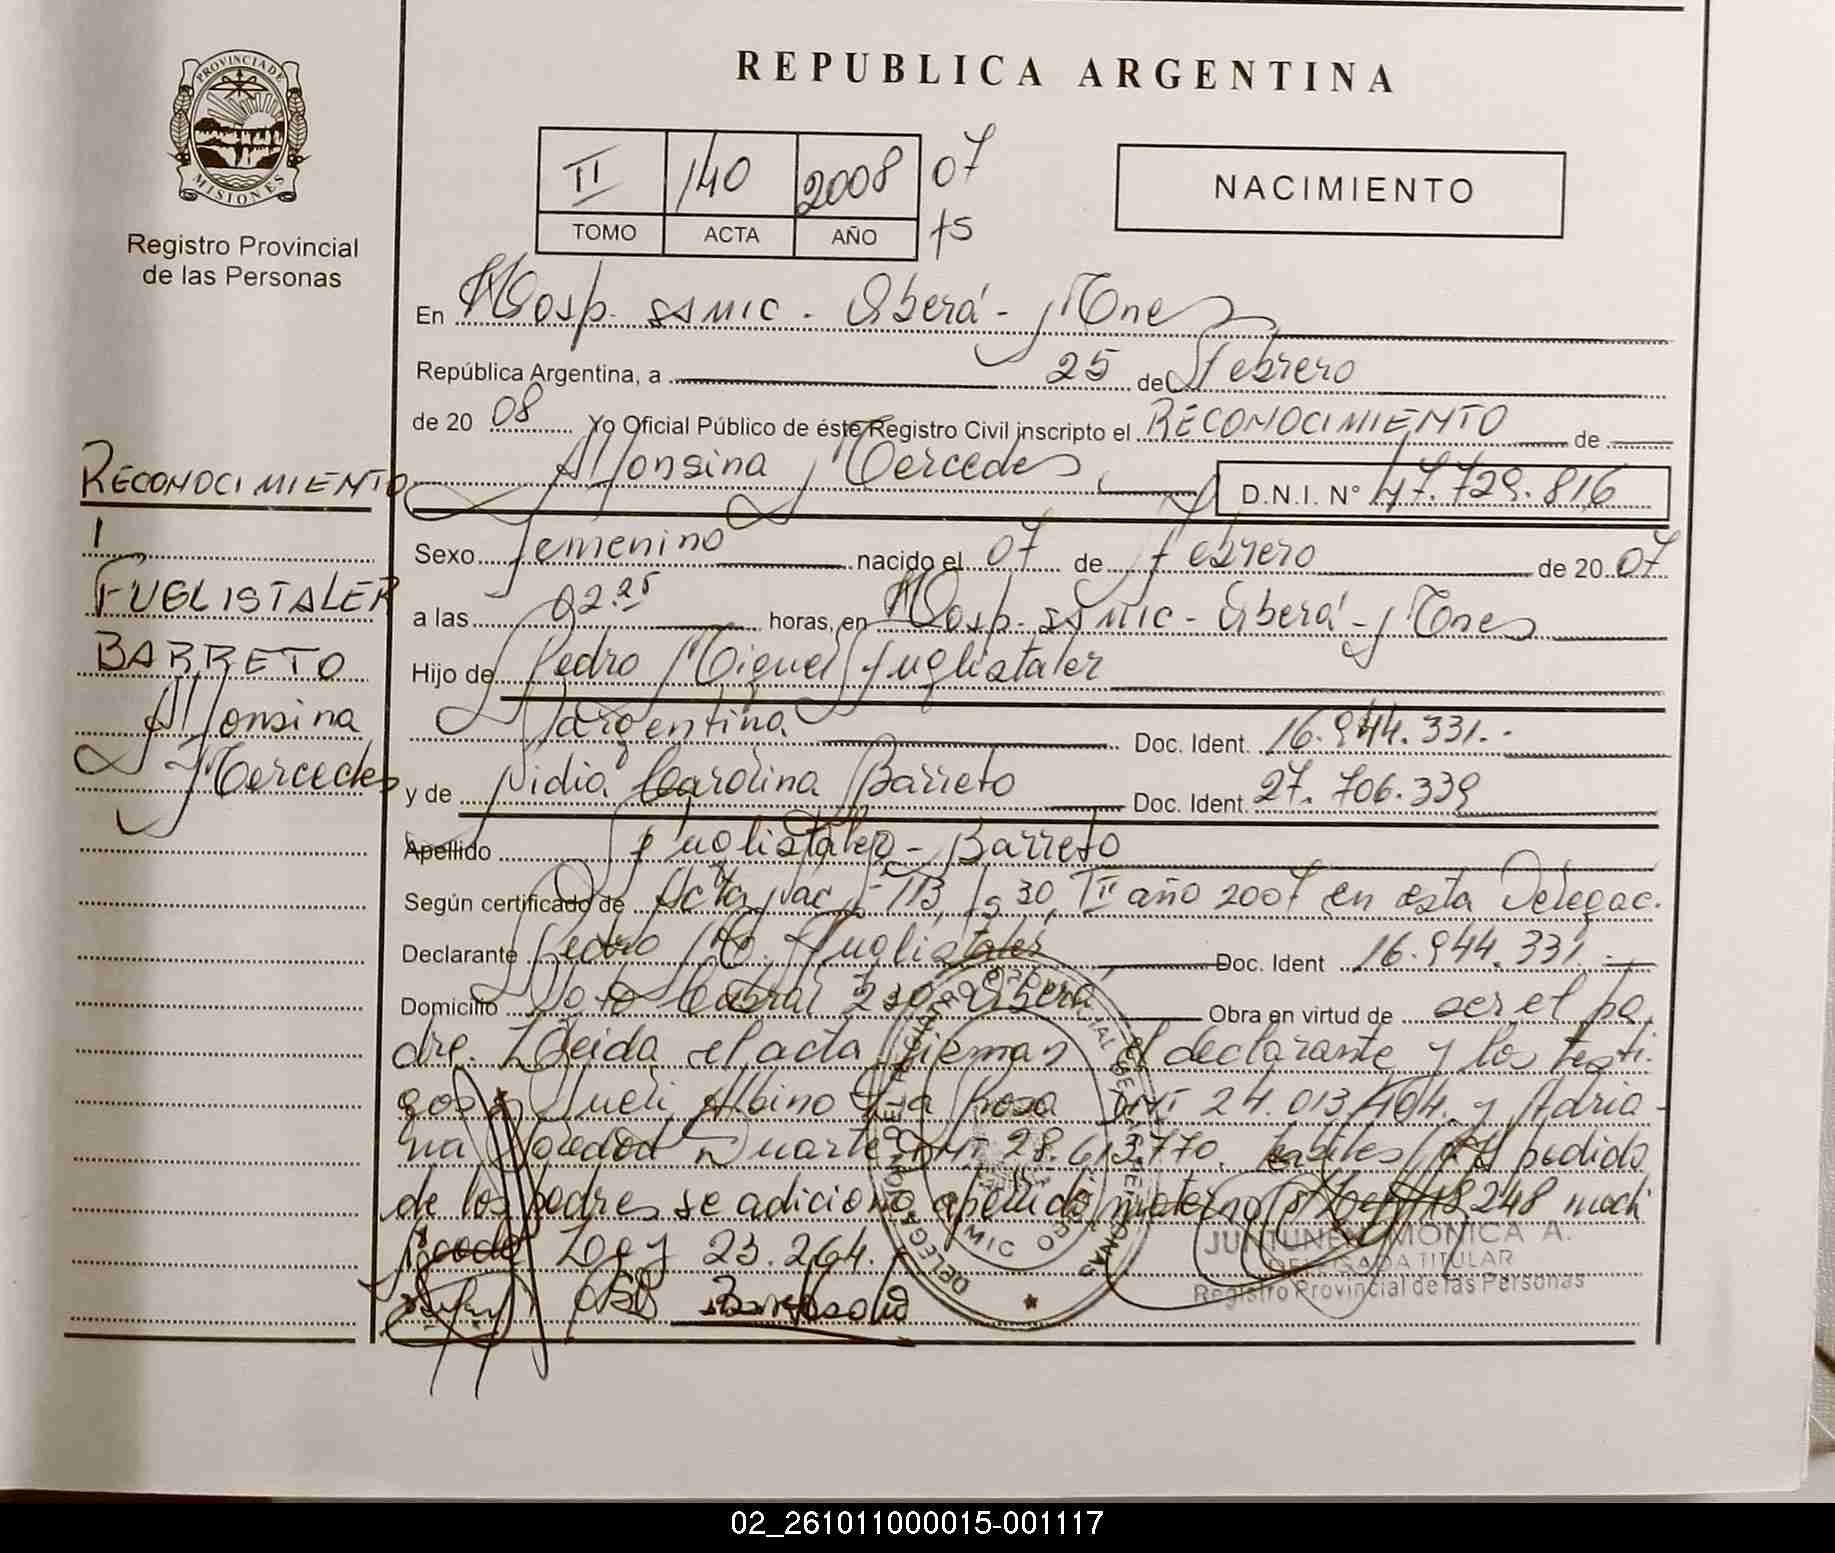 REPUBLICA ARGENTINA
PROVINCIA DE
MISIONES
Registro Provincial
de las Personas
II 140 2008 07
TOMO ACTA AÑO fs
NACIMIENTO
En Hosp. SAMIC. Oberá - Mnes
República Argentina, a 25 de Febrero
de 20 08 Yo Oficial Público de éste Registro Civil inscripto el RECONOCIMIENTO de
Alfonsina Mercedes D.N.I. N° 47.729.816
Sexo femenino nacido el 07 de febrero de 20 07
a las 02.25 horas, en Hosp. SAMIC - Oberá - Mnes
Hijo de Pedro Miguel Fuglistaler
argentina Doc. Ident. 16.944.331.-
y de Nidia Carolina Barreto Doc. Ident. 27.706.339
Apellido Fuglistaler - Barreto
Según certificado de Acta Nac. 113, fs 30, T II año 2007 en esta Delegac.
Declarante Pedro M. Fuglistaler Doc. Ident 16.944.331.-
Domicilio Sgto Cabral Oberá Obra en virtud de ser el pa
dre. Leida el acta firman el declarante y los testi-
gos Sueli Albino Da Rosa DNI 24.013.404. y Adria-
na Soledad Duarte DNI 28.613.770. habiles A pedido
de los padres se adiciono apellido materno s/ Ley 18248 modi
ficado Ley 23.264.
JUNTUNEN MONICA A.
DELEGADA TITULAR
Registro Provincial de las Personas
RECONOCIMIENTO
1
FUGLISTALER
BARRETO
Alfonsina
Mercedes
02_261011000015-001117